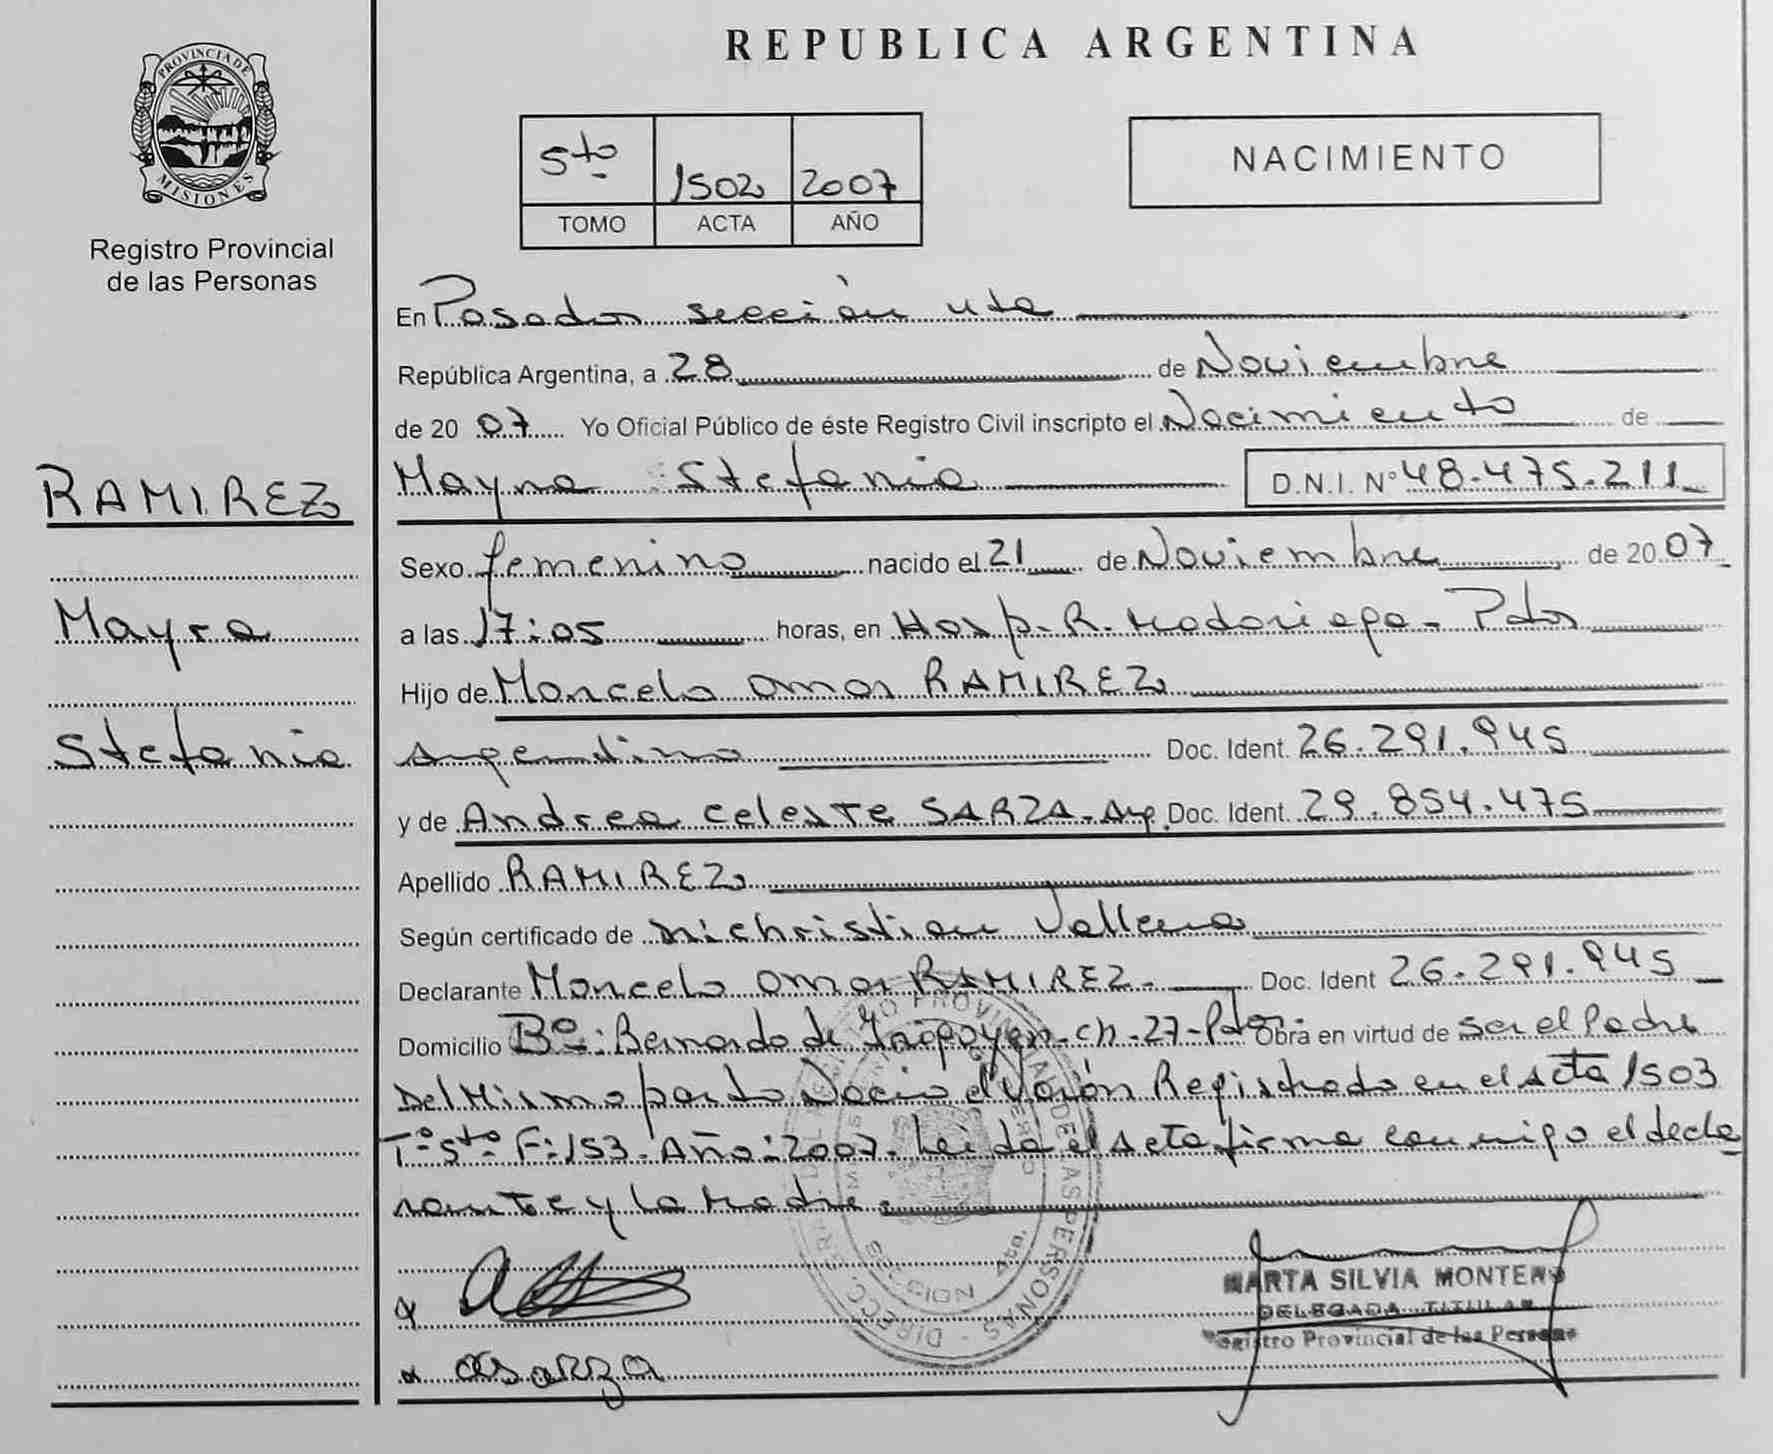 PROVINCIA DE
MISIONES
Registro Provincial
de las Personas
RAMIREZ
Mayra
Stefania
REPUBLICA ARGENTINA
5to 1502 2007
TOMO ACTA AÑO
NACIMIENTO
En Posadas sección 4ta
República Argentina, a 28 de Noviembre
de 2007 Yo Oficial Público de éste Registro Civil inscripto el Nacimiento de
Mayra Stefania D.N.I. Nº 48.475.211
Sexo femenino nacido el 21 de Noviembre de 2007
a las 17:05 horas, en Hosp. R. Madariaga - Pdas
Hijo de Marcelo Omar RAMIREZ
Argentino Doc. Ident. 26.291.945
y de Andrea Celeste SARZA - Arg. Doc. Ident. 29.854.475
Apellido RAMIREZ
Según certificado de Christian Vallena
Declarante Marcelo Omar RAMIREZ - Doc. Ident 26.291.945
Domicilio Bº: Bernardo de Irigoyen - ch - 27 - Pdas. Obra en virtud de ser el Padre
Del Mismo parto Nació el Varón Registrado en el Acta 1503
Tº 5to F: 153 - Año: 2007. Leída el Acta firma conmigo el decla
rante y la Madre.
x
x ASarza
MARTA SILVIA MONTERO
DELEGADA TITULAR
Registro Provincial de las Personas